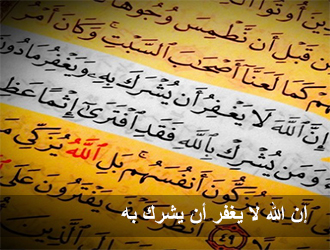 أُوتُوا
قَبْلِ أَن نَّطْمِسَ وُجُوهًا
كَمَا لَعَنَّا أَصْحَٰبَ السَّبْتِ وَكَانَ أَمْرُ
إِنَّ اللَّهَ لَا يَغْفِرُ أَن يُشْرَكَ بِهِ وَيَغْفِرُ مَا دُونَ
وَمَن يُشْرِكْ بِاللَّهِ فَقَدِ افْتَرَىٰ إِثْمًا عَظِ
يُزَكُّونَ أَنفُسَهُم بَلِ اللَّهُ يُزَكِّي مَ
٤٩ يَفْتَرُونَ عَلَى
إن الله لا يغفر أن يشرك به